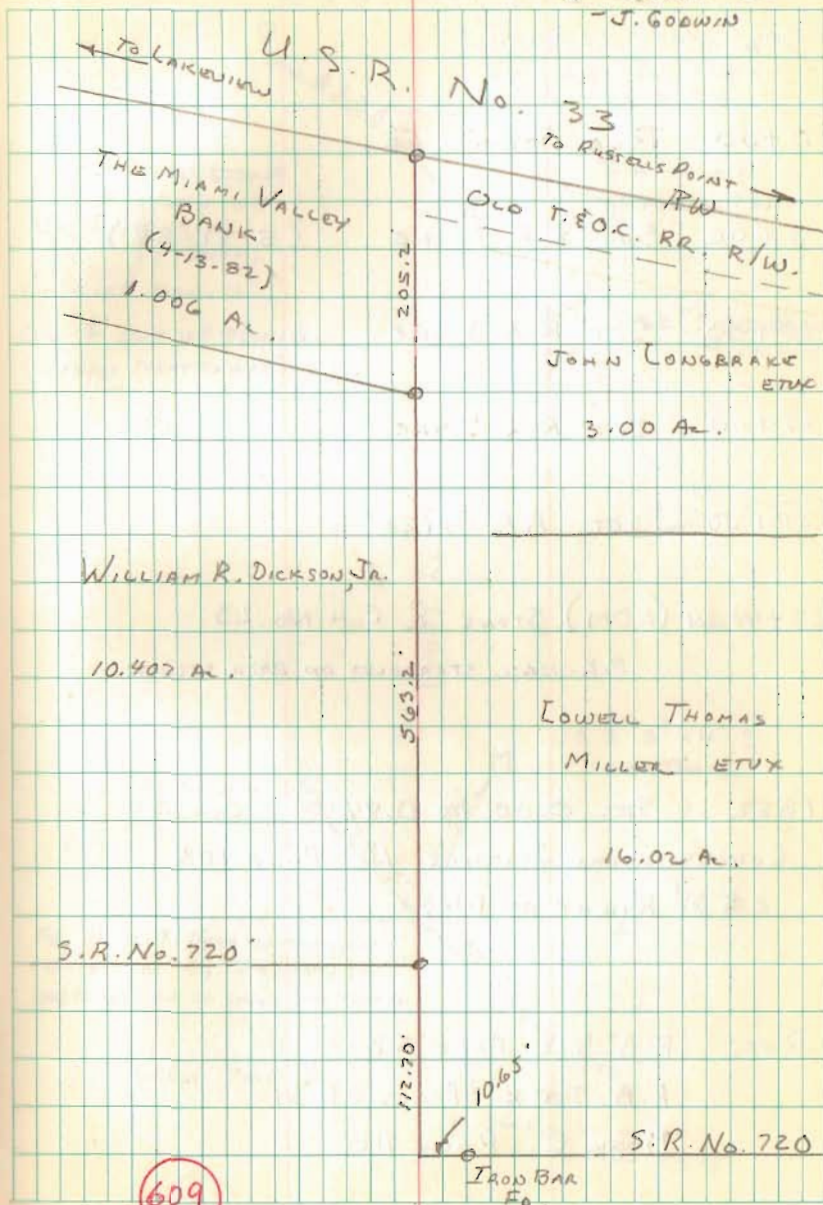 -J. GODWIN
TO LAKEVIEW
U.S.R. No. 33
TO RUSSELLS POINT
R/W
OLD T.&O.C. RR. R/W.
THE MIAMI VALLEY
BANK
(4-13-82)
1.006 Ac.
205.2
JOHN LONGBRAKE
ETUX
3.00 Ac.
WILLIAM R. DICKSON, JR.
10.407 Ac.
563.2'
LOWELL THOMAS
MILLER ETUX
16.02 Ac.
S.R. No. 720
112.70'
10.65'
S.R. No. 720
IRON BAR
FD.
609